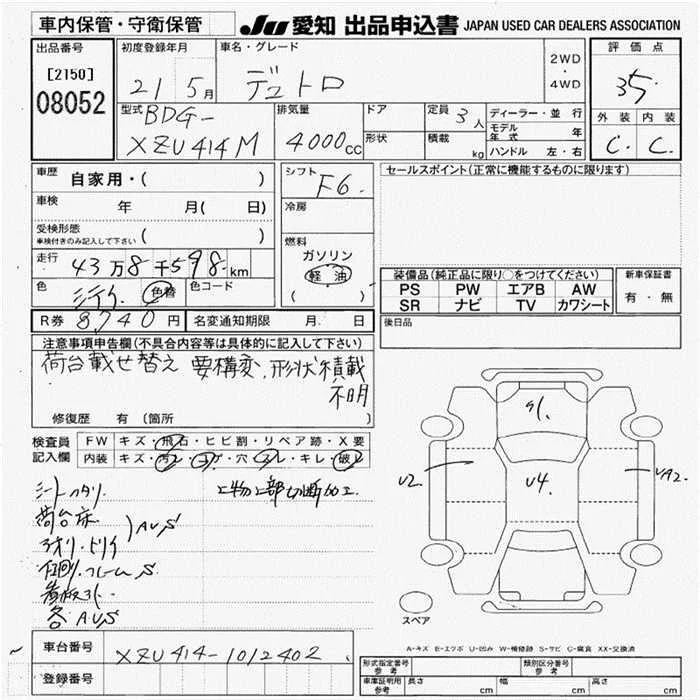 車内保管・守衛保管
JU 愛知 出品申込書 JAPAN USED CAR DEALERS ASSOCIATION
出品番号
[2150]
08052
初度登録年月
21 5月
車名・グレード
デュトロ
2WD
・
4WD
評価点
3.5
外装 内装
C. C.
型式
BDG-
XZU414M
排気量
4000cc
ドア
形状
定員 3人
積載 kg
ディーラー・並行
モデル年式 年
ハンドル 左・右
車歴
自家用・( )
車検
年 月( 日)
受検形態
車検付きのみ記入して下さい ( )
走行
43万8千598km
色
色替
色コード
シフト
F6.
冷房
燃料
ガソリン
軽油
( )
セールスポイント(正常に機能するものに限ります)
装備品(純正品に限り○をつけてください)
PS PW エアB AW
SR ナビ TV カワシート
新車保証書
有・無
R券 8,740円
名変通知期限 月. 日
後日品
注意事項申告欄(不具合内容等は具体的に記入して下さい)
荷台載せ替え 要構変.形状積載
不明
修復歴 有(箇所 )
検査員
記入欄
FW キズ・飛石・ヒビ割・リペア跡・X要
内装 キズ・汚レ・コゲ・穴・スレ・キレ・破レ
上物上部切断加工.
荷台床
アオリ・トリイ
A.U.S
S
看板
各 A.U.S
S1.
U2
U4.
UA2.
スペア
A-キズ E-エクボ U-凹み W-補修跡 S-サビ C-腐食 XX-交換済
車台番号
XZU414-1012402
登録番号
形式指定番号
参考
類別区分番号
参考
車庫証明用
参考
長さ cm
幅 cm
高さ cm